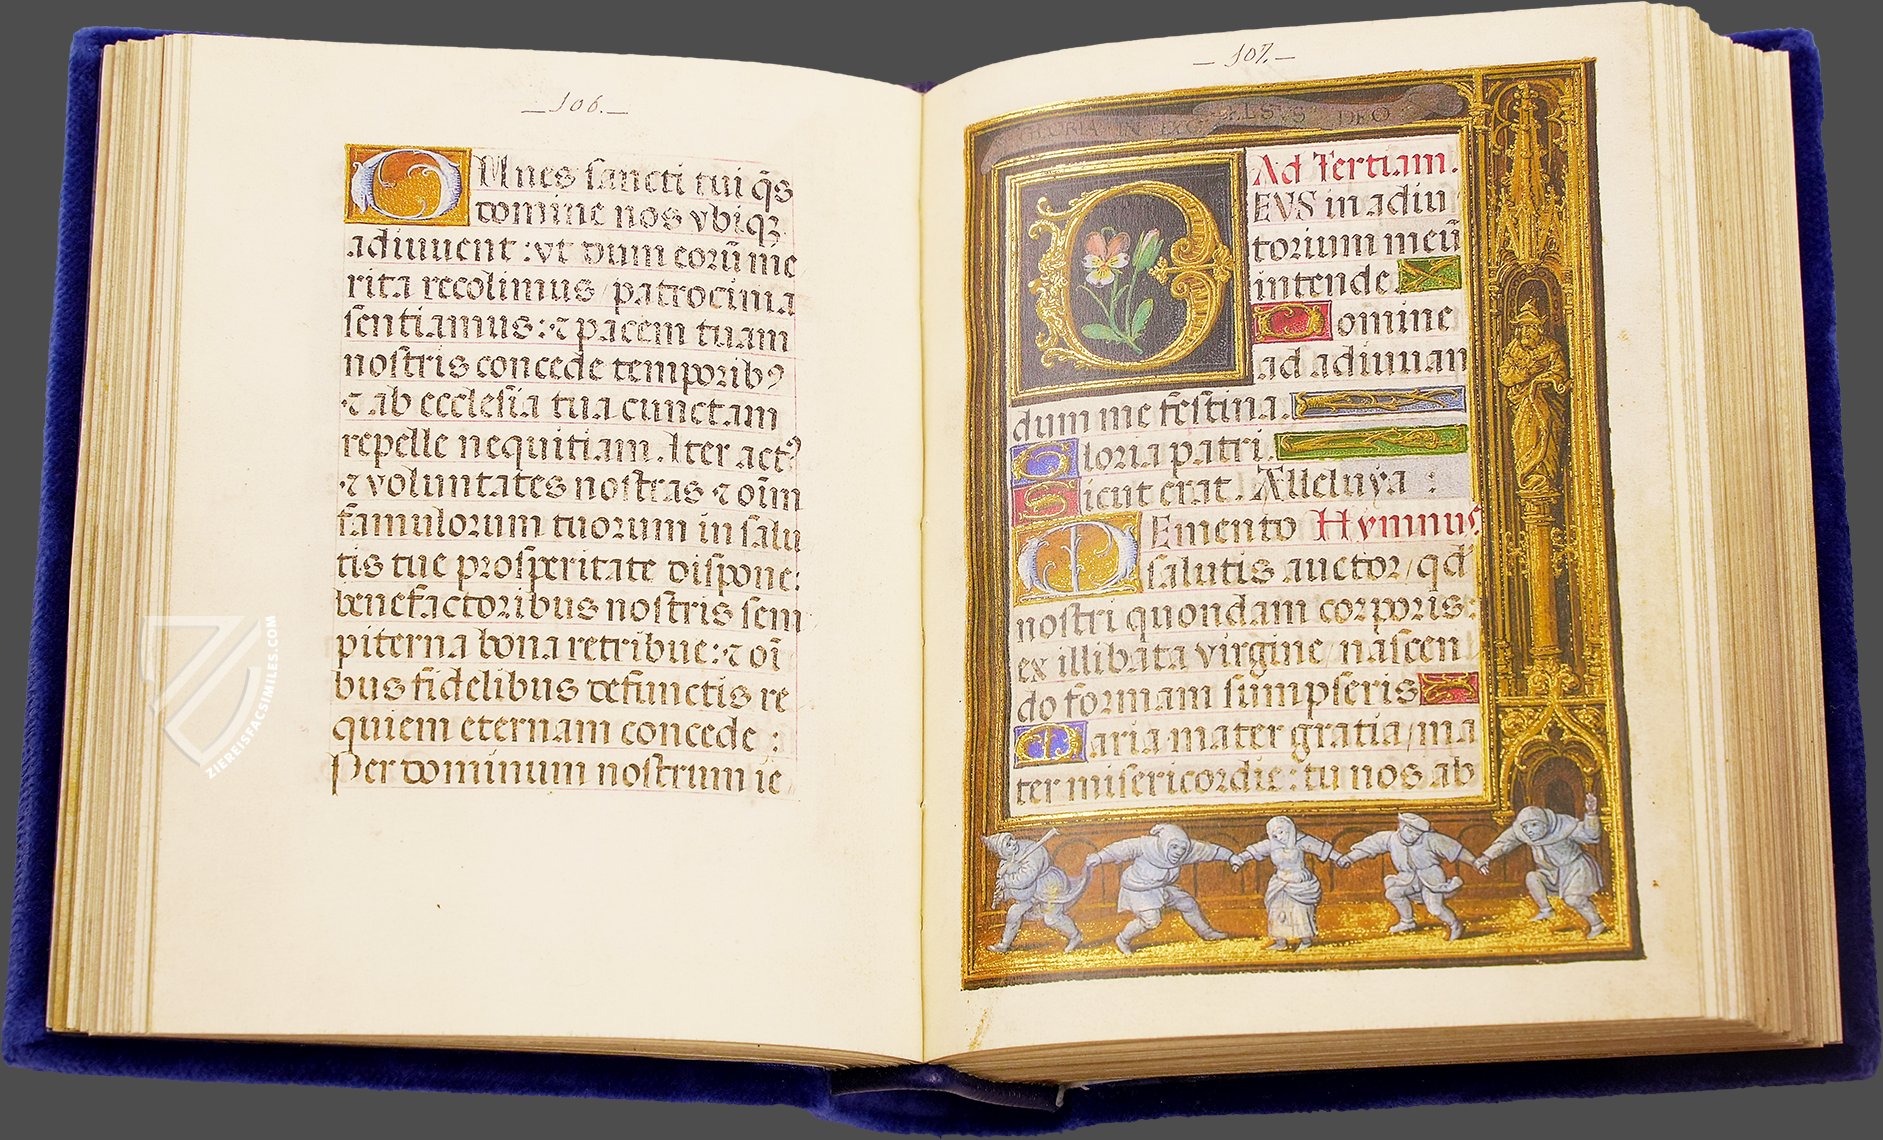 106.
OMnes sancti tui q̄s
domine nos vbiqꝫ
adiuuent : vt dum eorū me
rita recolimus / patrocinia
sentiamus : ⁊ pacem tuam
nostris concede temporibꝰ
⁊ ab ecclesia tua cunctam
repelle nequitiam. Iter actꝰ
⁊ voluntates nostras ⁊ oīm
famulorum tuorum in salu
tis tue prosperitate dispone:
benefactoribus nostris sem
piterna bona retribue: ⁊ oī
bus fidelibus defunctis re
quiem eternam concede :
Per dominum nostrum ie
107.
GLORIA IN EXCELSVS DEO
Ad Tertiam.
DEVS in adiu
torium meū
intende.
Domine
ad adiuuan
dum me festina.
Gloria patri.
Sicut erat. Alleluya :
MEmento Hymnus
salutis auctor / qd̄
nostri quondam corporis:
ex illibata virgine / nascen
do formam sumpseris
Maria mater gratia / ma
ter misericordie: tu nos ab
ZIEREISFACSIMILES.COM